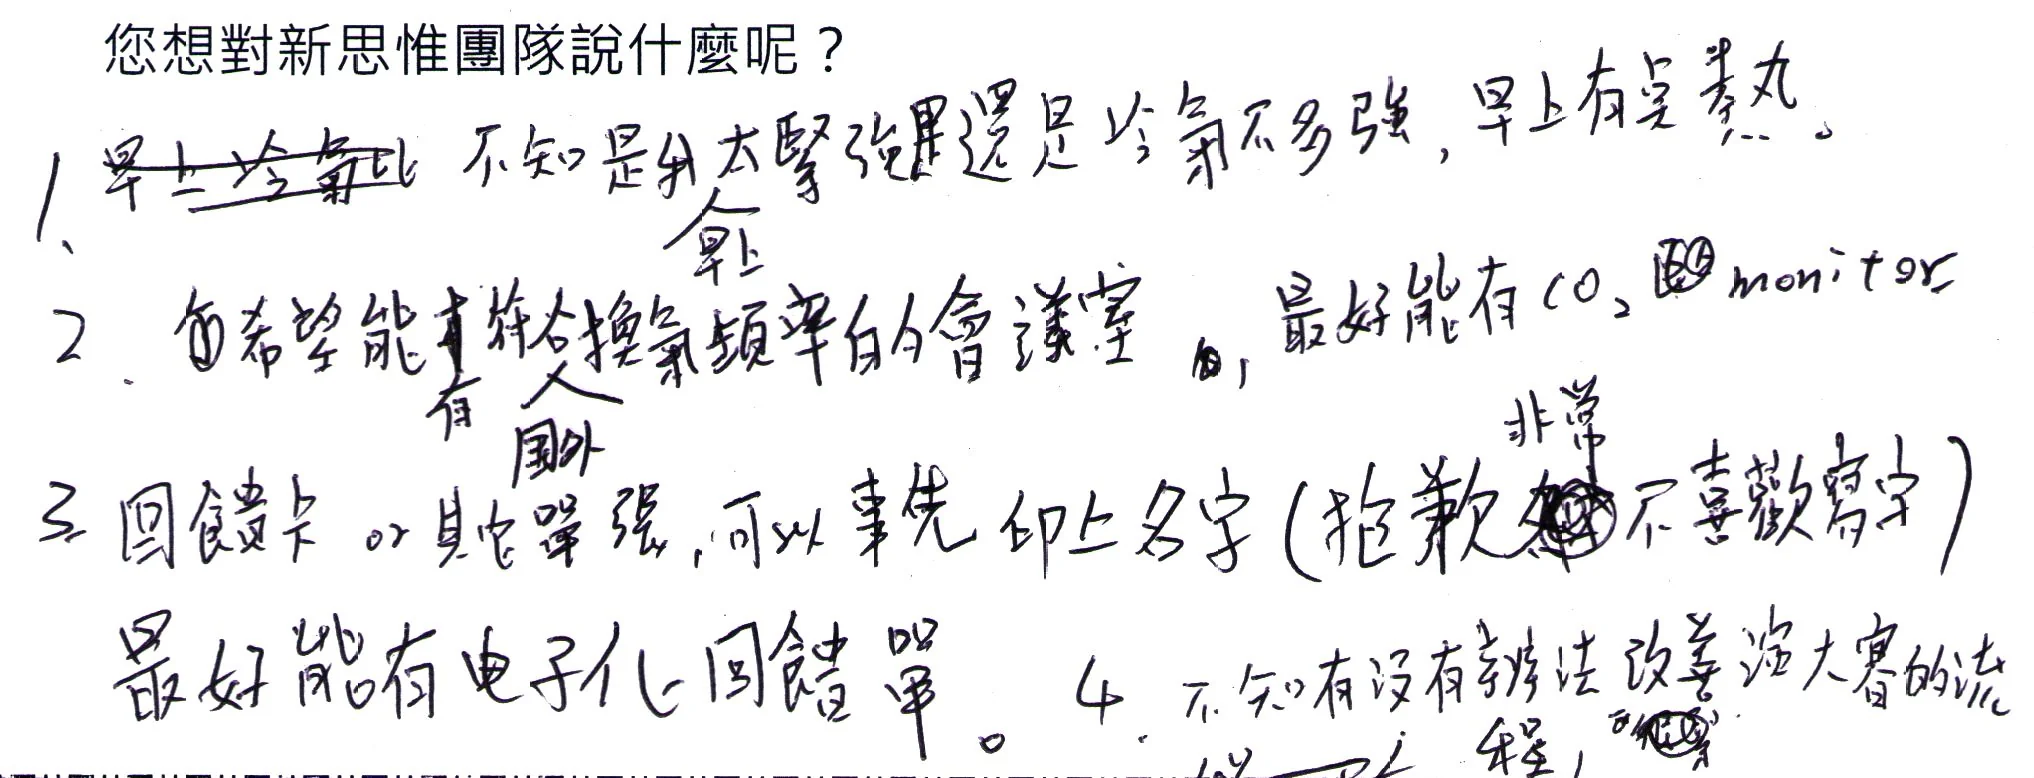 您想對新思惟團隊說什麼呢？
1、早上冷氣比 不知是我太緊張還是冷氣不夠強，早上有點熱。
早上
2. 希望能有符合換氣頻率的會議室，最好能有CO₂ monitor
有 國外
非常
3. 回饋卡 or 其它單張，可以事先印上名字(抱歉不喜歡寫字)
最好能有电子化回饋單。 4. 不知有沒有辦法改善演大賽的流
程，